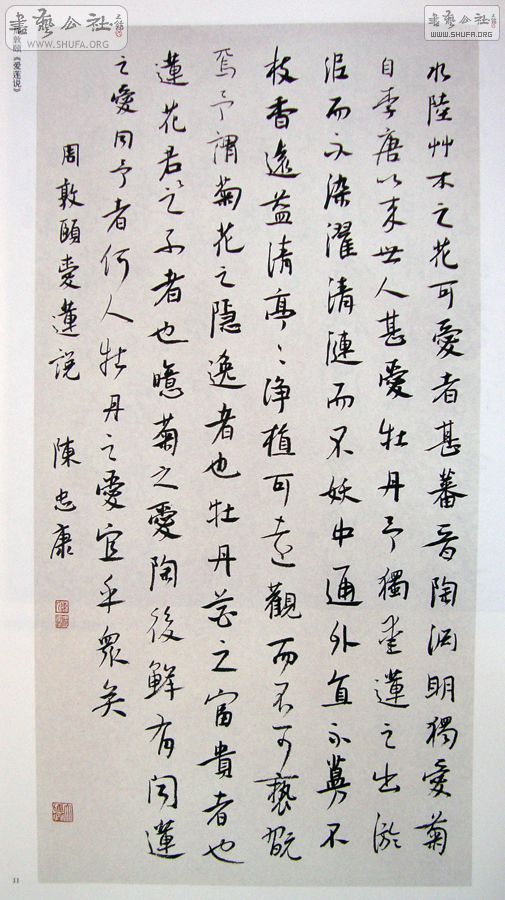 書藝公社
WWW.SHUFA.ORG
書藝公社
WWW.SHUFA.ORG
敦颐《爱莲说》
水陸艸木之花可愛者甚蕃晉陶淵明獨愛菊
自李唐以来世人甚愛牡丹予獨愛蓮之出淤
泥而不染濯清漣而不妖中通外直不蔓不
枝香遠益清亭〻淨植可遠觀而不可褻翫
焉予謂菊花之隱逸者也牡丹花之富貴者也
蓮花君之子者也噫菊之愛陶後鮮有聞蓮
之愛同予者何人牡丹之愛宜乎衆矣
周敦頤愛蓮説 陳忠康
11